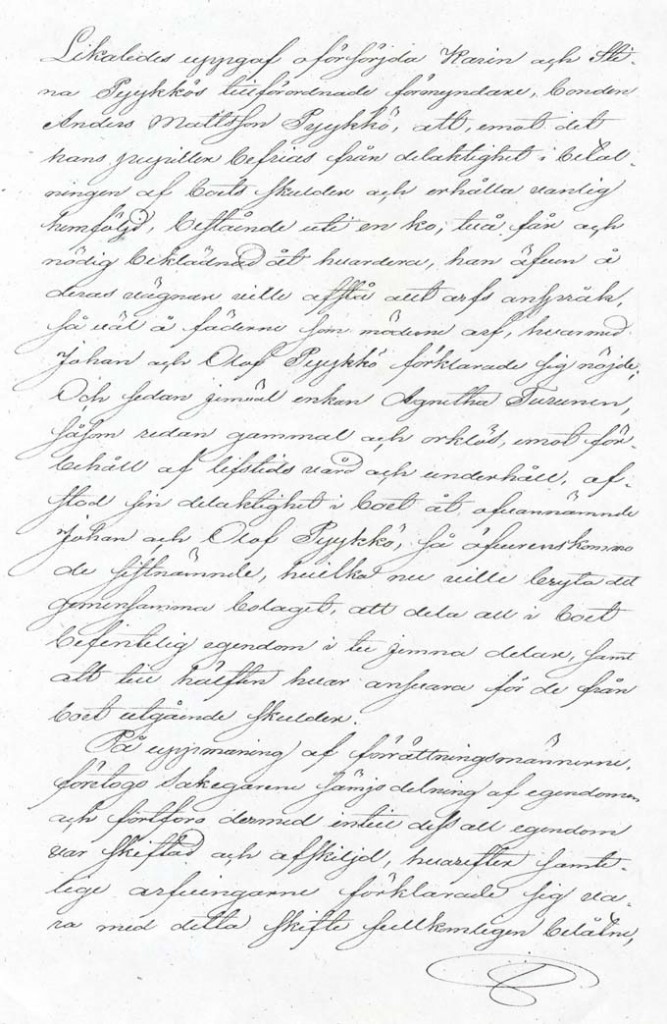 Likaledes uppgaf oförsörjda Karin och Sti-
na Pyykkös tillförordnade förmyndare, bonden
Anders Mattsson Pyykkö, att, emot det
hans pupiller befrias från delaktighet i betal-
ningen af boets skulder och erhålla vanlig
hemföljd, bestående uti en ko, två får och
nödig beklädnad åt hvardera, han äfven å
deras vägnar ville afstå allt arfs anspråk,
så väl å fäderne som möderne arf, hvarmed
Johan och Olof Pyykkö förklarade sig nöjde;
Och sedan jemväl enkan Agnetha Turunen,
såsom redan gammal och orklös, emot för-
behåll af lifstids vård och underhåll, af-
stod sin delaktighet i boet åt ofvannämnde
Johan och Olof Pyykkö; så öfverenskommo
de sistnämnde, hvilka nu ville bryta det
gemensamma bolaget, att dela all i boet
befintelig egendom i tu jemna delar, samt
att till hälften hvar ansvara för de från
boet utgående skulder.
På uppmaning af förrättningsmännerne,
företogo sakegarene sämjodelning af egendomen
och fortforo dermed intill dess all egendom
var skiftad och afskiljd, hvarefter samte-
lige arfvingarne förklarade sig va-
ra med detta skifte fullkomligen belåtne,